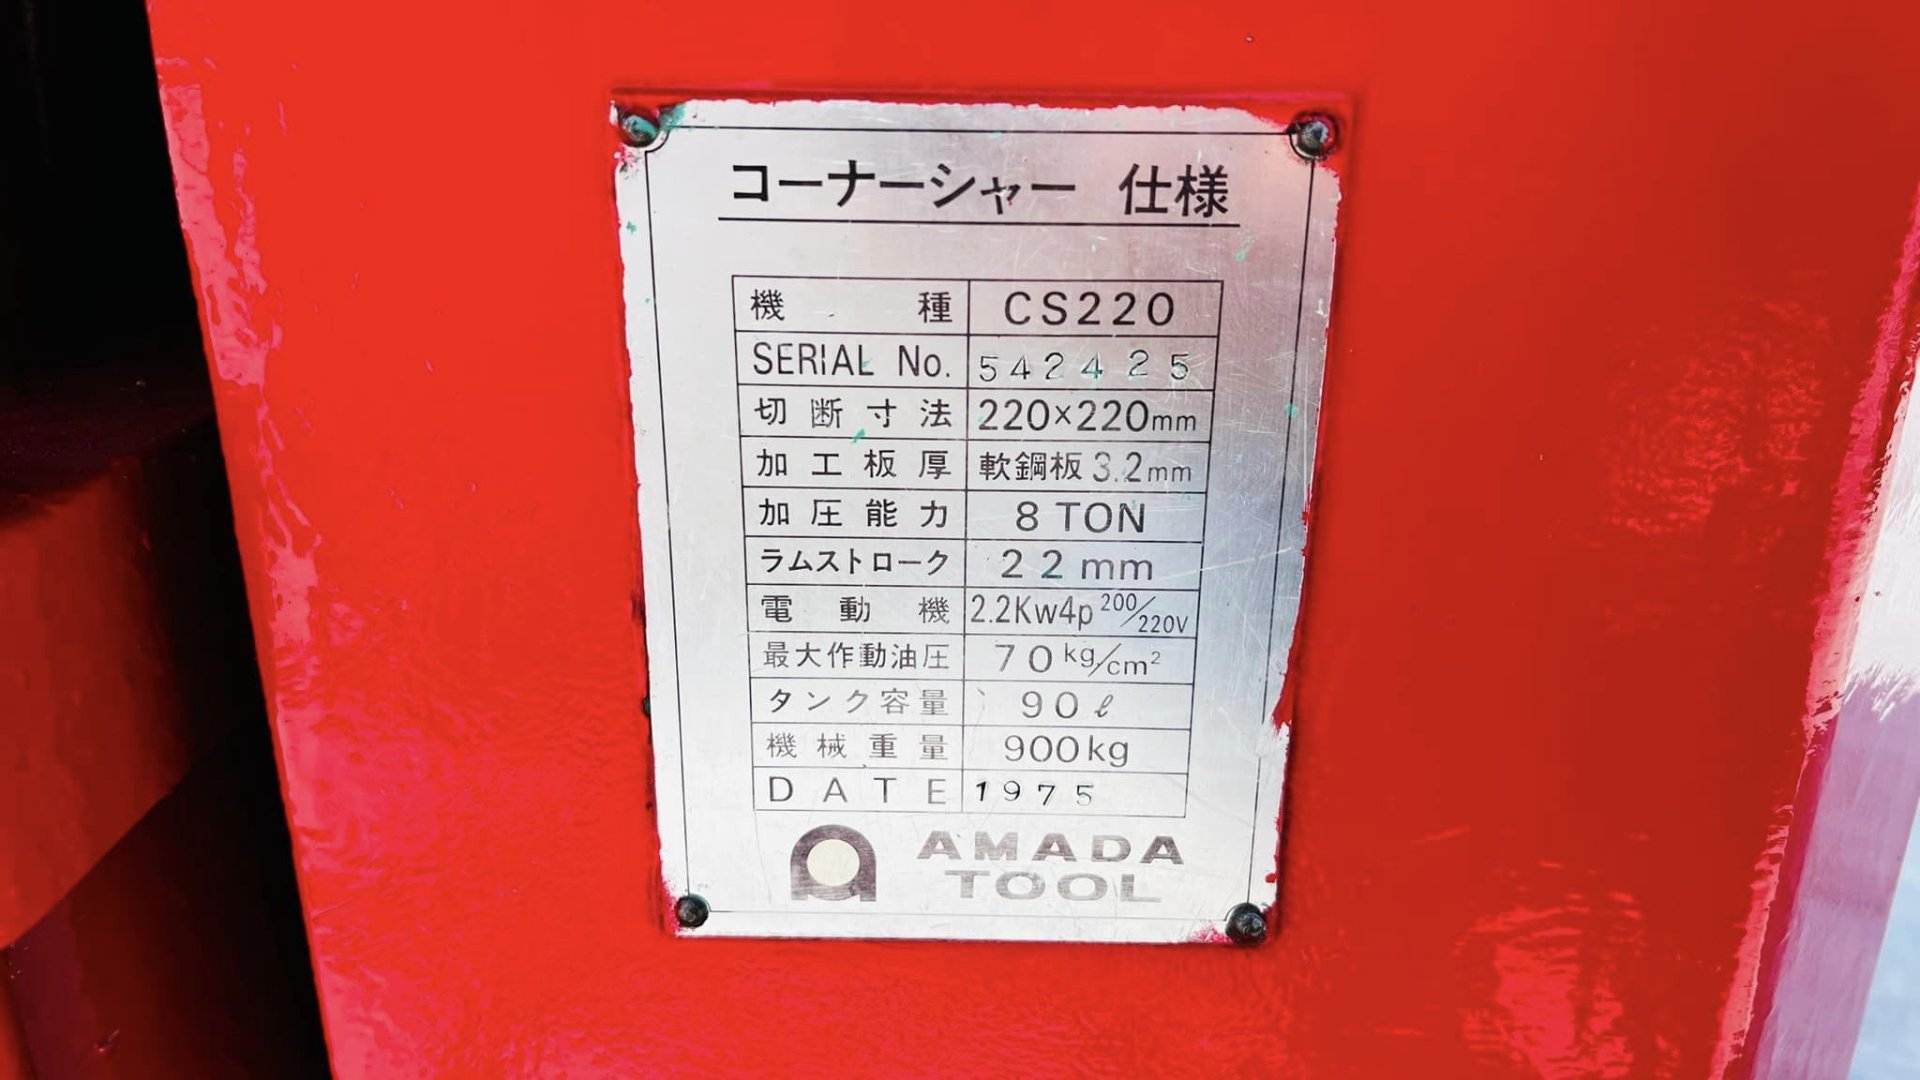 コーナーシャー 仕様
機種 CS220
SERIAL No. 542425
切断寸法 220×220mm
加工板厚 軟鋼板3.2mm
加圧能力 8 TON
ラムストローク 22mm
電動機 2.2Kw4p 200/220V
最大作動油圧 70kg/cm²
タンク容量 90ℓ
機械重量 900kg
DATE 1975
AMADA
TOOL